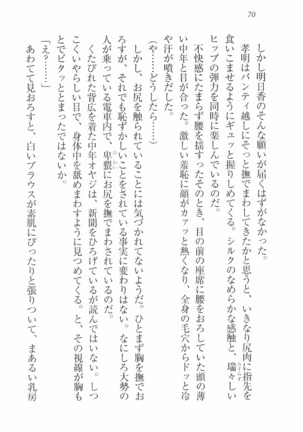 70
しかし明日香のそんな願いが届くはずがなかった。
孝明はパンティ越しにそっと撫でまわしてきたかと思うと、いきなり尻肉に指先を
食いこませるようにギュッと握りしめてくる。シルクのなめらかな感触と、瑞々しい
ヒップの弾力を同時に楽しんでいるのだ。
不快感にたまらず腰を揺すったそのとき、目の前の座席に腰をおろしていた頭の薄
い中年と目が合った。激しい羞恥に顔がカァッと熱くなり、全身の毛穴からドッと冷
や汗が噴きだした。
(や……どうしたら……)
しかし、お尻を触られていることには気づかれてないようだ。ひとまず胸を撫でお
ろすが、それでも恥ずかしいことをされている事実に変わりはない。なにしろ大勢の
人が乗っている電車内で、卑猥にお尻を撫でまわされているのだ。
くたびれた背広を着た中年オヤジは、新聞をひろげているが読んではいない。しつ
こくいやらしい目で、身体中を舐めまわすように見つめてくる。と、その視線が胸も
とでピタッととまったではないか。
「え?……」
あわてて見おろすと、白いブラウスが素肌にぴったりと張りついて、まあるい乳房